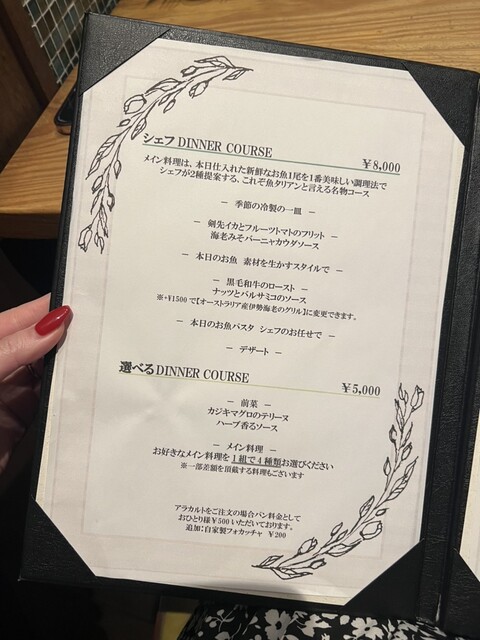 シェフ DINNER COURSE ￥8,000
メイン料理は、本日仕入れた新鮮なお魚1尾を1番美味しい調理法で
シェフが2種提案する、これぞ魚タリアンと言える名物コース
― 季節の冷製の一皿 ―
― 剣先イカとフルーツトマトのフリット ―
海老みそバーニャカウダソース
― 本日のお魚 素材を生かすスタイルで ―
― 黒毛和牛のロースト ―
ナッツとバルサミコのソース
※+¥1500で【オーストラリア産伊勢海老のグリル】に変更できます。
― 本日のお魚パスタ シェフのお任せで ―
― デザート ―
選べる DINNER COURSE ￥5,000
― 前菜 ―
カジキマグロのテリーヌ
ハーブ香るソース
― メイン料理 ―
お好きなメイン料理を1組で4種類お選びください
※一部差額を頂戴する料理もございます
アラカルトをご注文の場合パン料金として
おひとり様¥500いただいております。
追加:自家製フォカッチャ ¥200